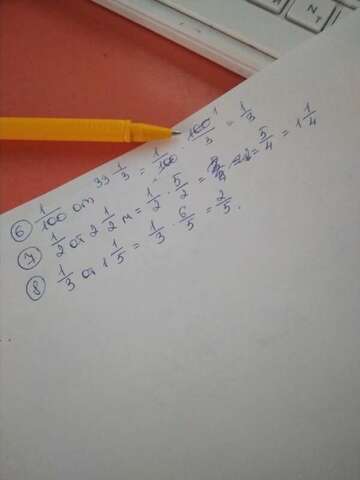 ⑥ 1/100 от 33 1/3 = 1/100 · 100/3 = 1/3
⑦ 1/2 от 2 1/2 м = 1/2 · 5/2 = 5/4 = 1 1/4
⑧ 1/3 от 1 1/5 = 1/3 · 6/5 = 2/5.